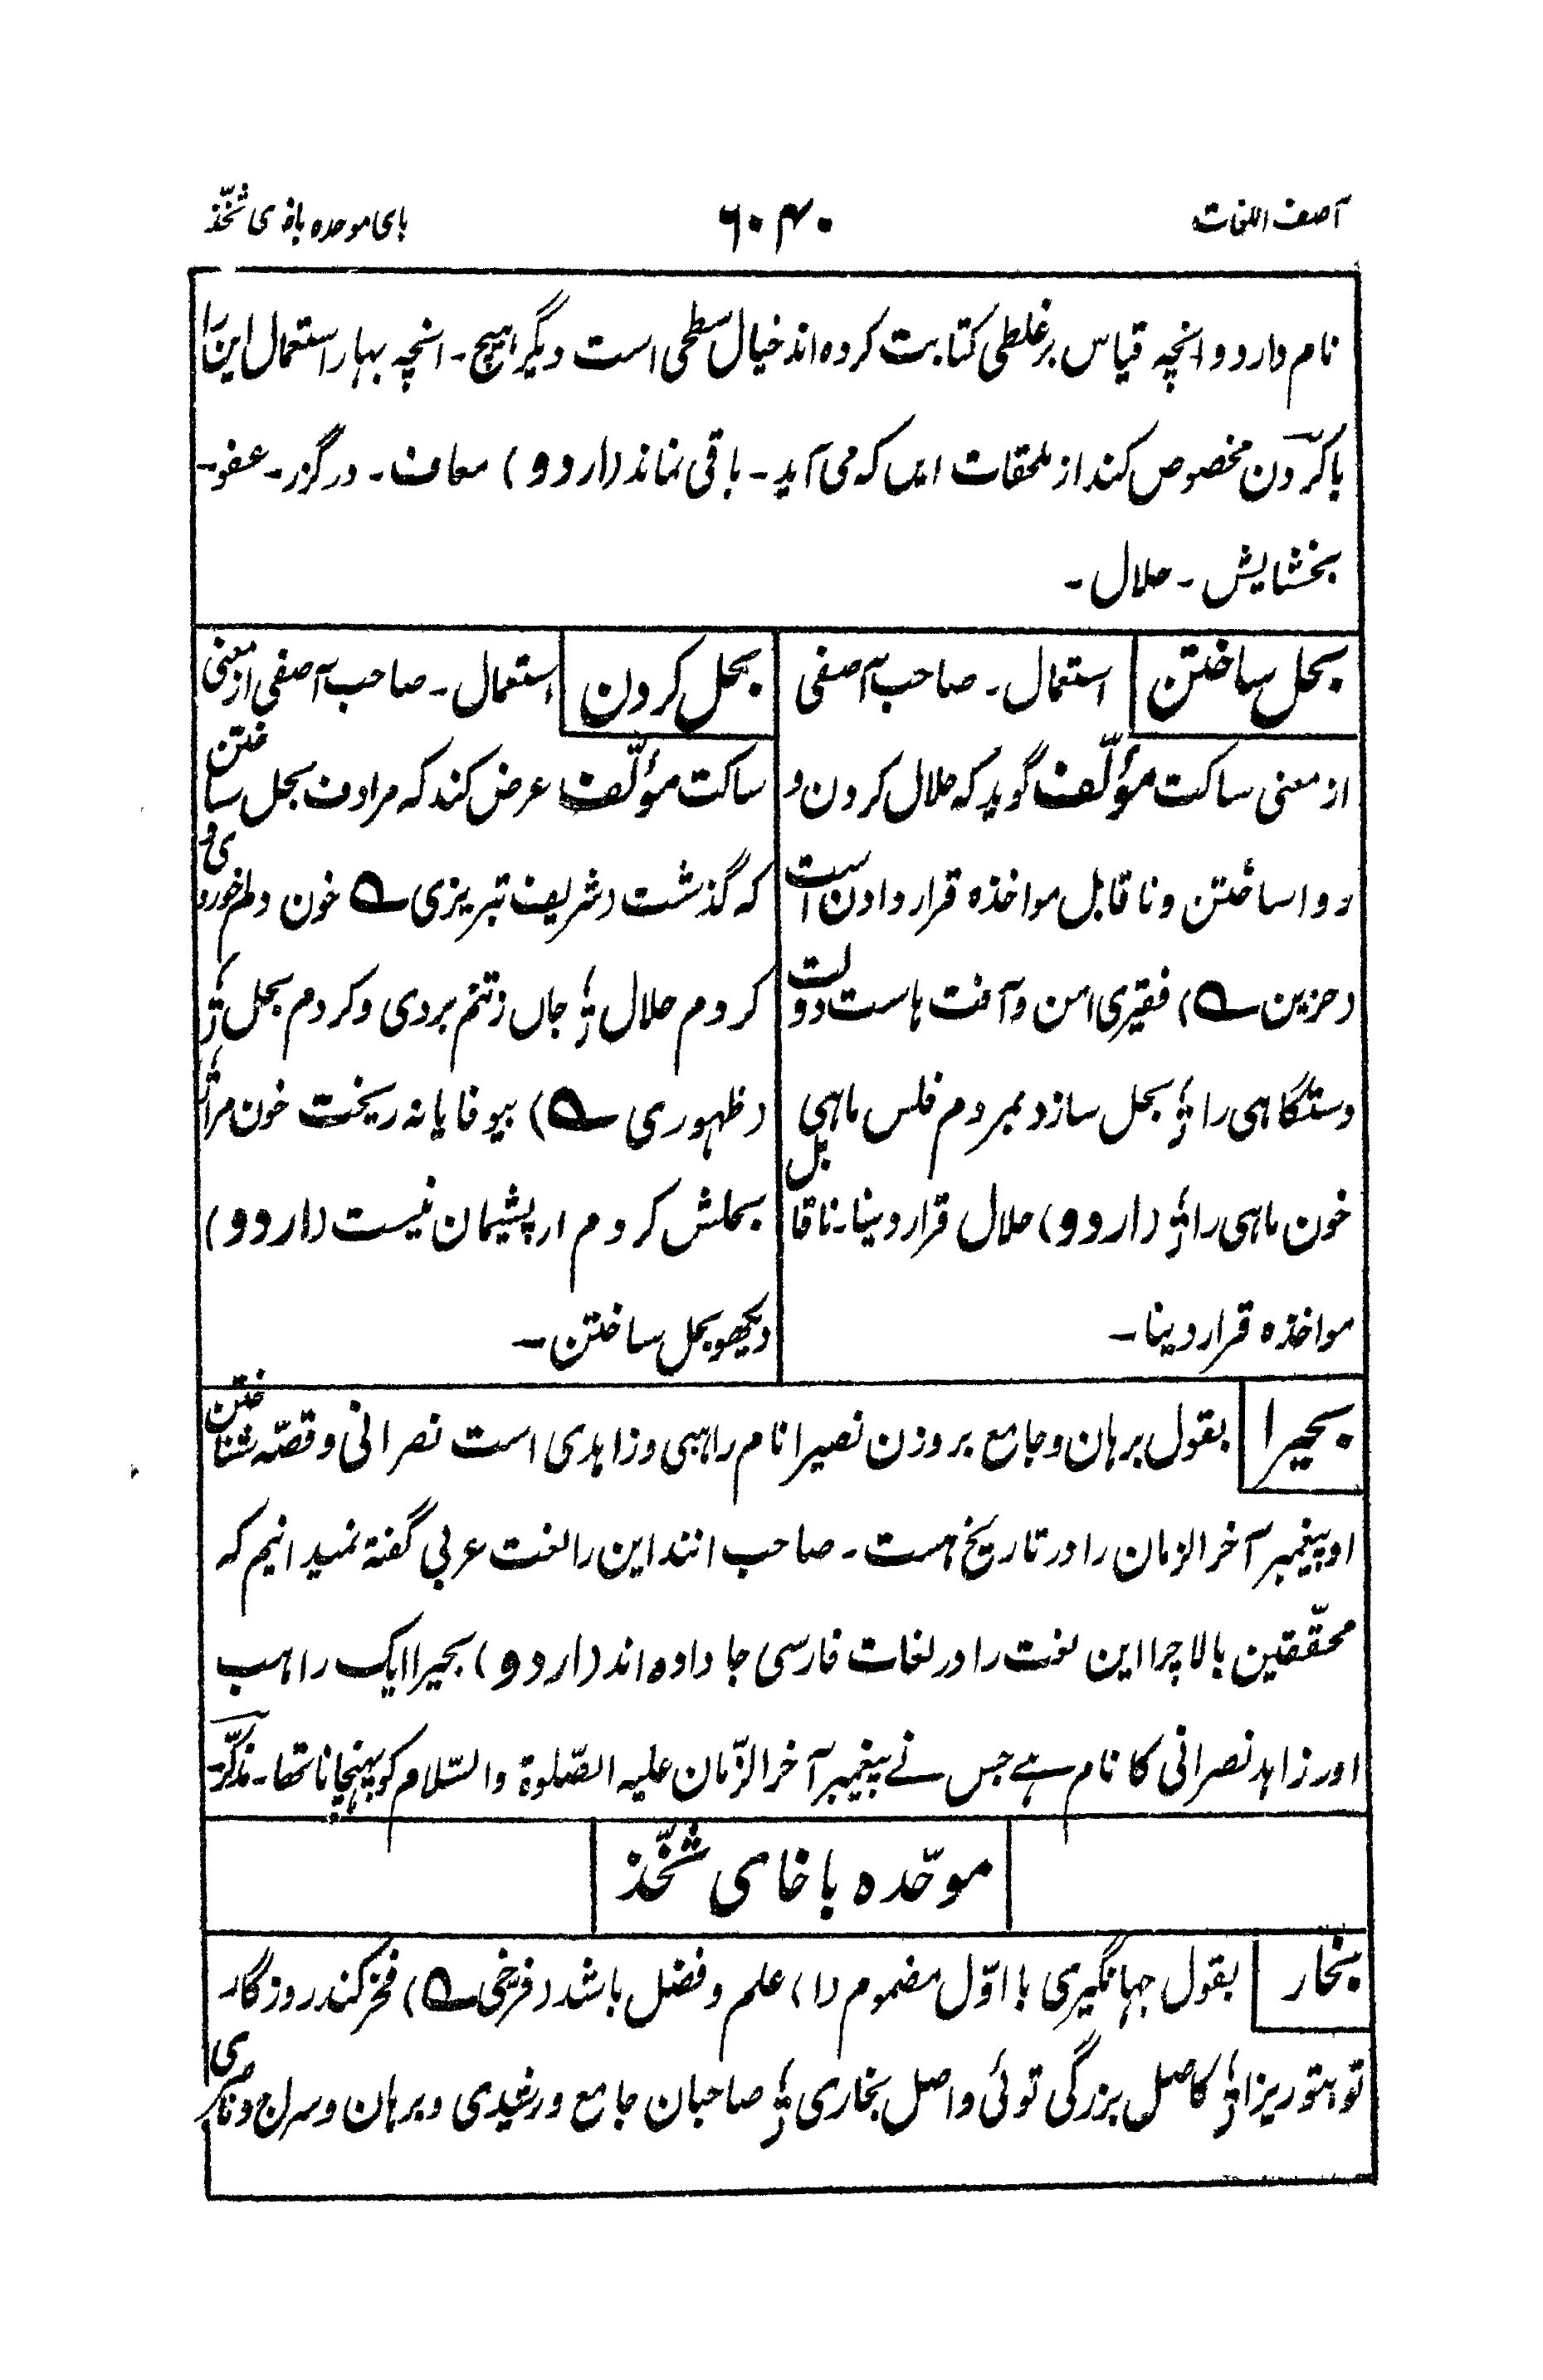 آصف اللغات
۶۰۴۰
بای موحده باخای شخّذ
نام دارد و انچه قیاس بر غلطی کتابت کرده اند خیال سطحی است دیگر هیچ ۔ انچه بهار استعمال این را
با کردن مخصوص کند از ملحقات این که می آید ۔ باقی نماند (اردو) معاف ۔ درگزر ۔ عفو ۔
بخشایش ۔ حلال ۔
بحل ساختن
استعمال ۔ صاحب آصفی
از معنی ساکت مؤلّف گوید که حلال کردن و
روا ساختن و ناقابل مواخذه قرار دادن است
(حزین ؎) فقیری امن و آفت هاست دولت
دستگاهی را ؛ بحل سازد بمردم فلس ماهی
خون ماهی را ؛ (اردو) حلال قرار دینا ۔ ناقابل
مواخذه قرار دینا ۔
بحل کردن
استعمال ۔ صاحب آصفی از معنی
ساکت مؤلّف عرض کند که مرادف بحل ساختن
که گذشت (شریف تبریزی ؎ خون دلم خوردی و
کردم حلال ؛ جاں ز تنم بردی و کردم بحل ؛
(ظهوری ؎) بیوفایانه ریخت خون مرا ؛
بحلش کردم ار پشیمان نیست (اردو)
دیکھو بحل ساختن ۔
بحیرا
بقول برهان و جامع بر وزن نصیرا نام راهبی و زاهدی است نصرانی و قصّه شناختن
او پیغمبر آخر الزمان را در تاریخ هست ۔ صاحب انند این را لغت عربی گفته نمیدانیم که
محقّقین بالا چرا این لغت را در لغات فارسی جا داده اند (اردو) بحیرا ایک راهب
اور زاهد نصرانی کا نام ہے جس نے پیغمبر آخر الزّمان علیه الصّلوة والسّلام کو پہنچانا تھا ۔ مذکّر ۔
موحّده با خای شخّذ
بخار
بقول جهانگیری با اوّل مضموم (۱) علم و فضل باشد (فرّخی ؎) فخر کند روزگار
تو بتو زیرا ؛ کاصل بزرگی توئی و اصل بخاری ؛ صاحبان جامع و رشیدی و برهان و سراج و ناصری